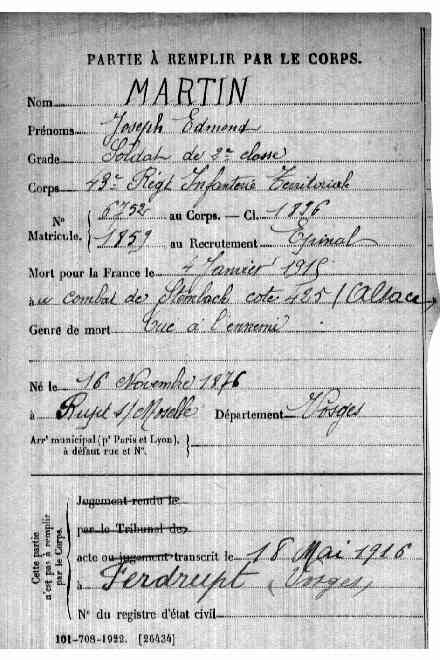 PARTIE À REMPLIR PAR LE CORPS.
Nom MARTIN
Prénoms Joseph Edmond
Grade Soldat de 2e classe
Corps 43e Régt Infanterie Territoriale
N° Matricule. { 6752 au Corps. — Cl. 1896
1859 au Recrutement Epinal
Mort pour la France le 4 Janvier 1915
à u combat de Steinbach cote 425 (Alsace)
Genre de mort Tué à l'ennemi
Né le 16 Novembre 1876
à Rupt s/Moselle Département Vosges
Arrt municipal (pr Paris et Lyon), à défaut rue et N°. }
Cette partie n'est pas à remplir par le Corps.
Jugement rendu le
par le Tribunal de
acte ou jugement transcrit le 18 Mai 1916
à Ferdrupt (Vosges)
N° du registre d'état civil
101-708-1922. [26434]